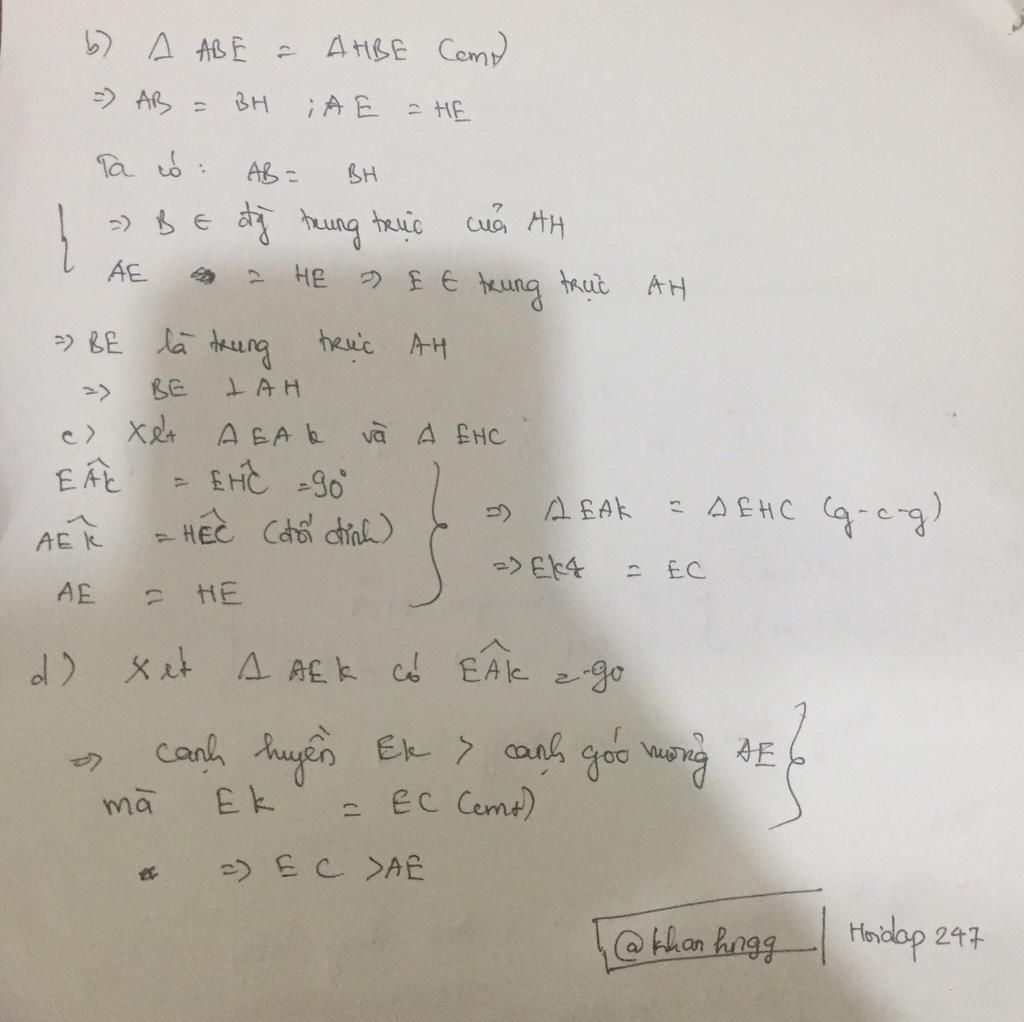 b) Δ ABE = Δ HBE (cmt)
=> AB = BH ; AE = HE
Ta có: AB = BH
=> B ∈ đg trung trực của AH
AE = HE => E ∈ trung trực AH
=> BE là trung trực AH
=> BE ⊥ AH
c) Xét Δ EAk và Δ EHC
EÂk = EĤC = 90°
AÊk = HÊC (đối đỉnh)
AE = HE
=> Δ EAk = Δ EHC (g-c-g)
=> Ek = EC
d) Xét Δ AEk có EÂk = 90
=> cạnh huyền Ek > cạnh góc vuông AE
mà Ek = EC (cmt)
=> EC > AE
@khanhngg Hoidap 247